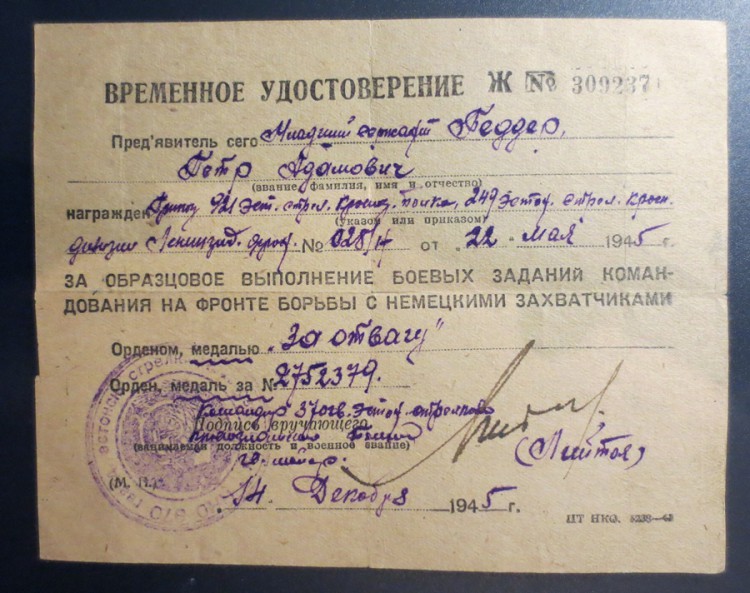 ВРЕМЕННОЕ УДОСТОВЕРЕНИЕ Ж № 309237
Пред'явитель сего Младший сержант Геддер,
Петр Адамович
(звание фамилия, имя и отчество)
награжден Приказ 921 Эст. стрел. Краснозн. полка, 249 Эстон. стрел. Красн.
(указом или приказом)
дивизии Ленинград. фронт. № 028/н от "22" мая 1945 г.
ЗА ОБРАЗЦОВОЕ ВЫПОЛНЕНИЕ БОЕВЫХ ЗАДАНИЙ КОМАН-
ДОВАНИЯ НА ФРОНТЕ БОРЬБЫ С НЕМЕЦКИМИ ЗАХВАТЧИКАМИ
Орденом, медалью "За отвагу"
Орден, медаль за № 2752379.
Командир 37 гв. Эстон. стрелково
Подпись вручающего
(занимаемая должность и военное звание)
гв. майор.
(М. П.)
14 Декабря 1945 г.
ЦТ НКО.